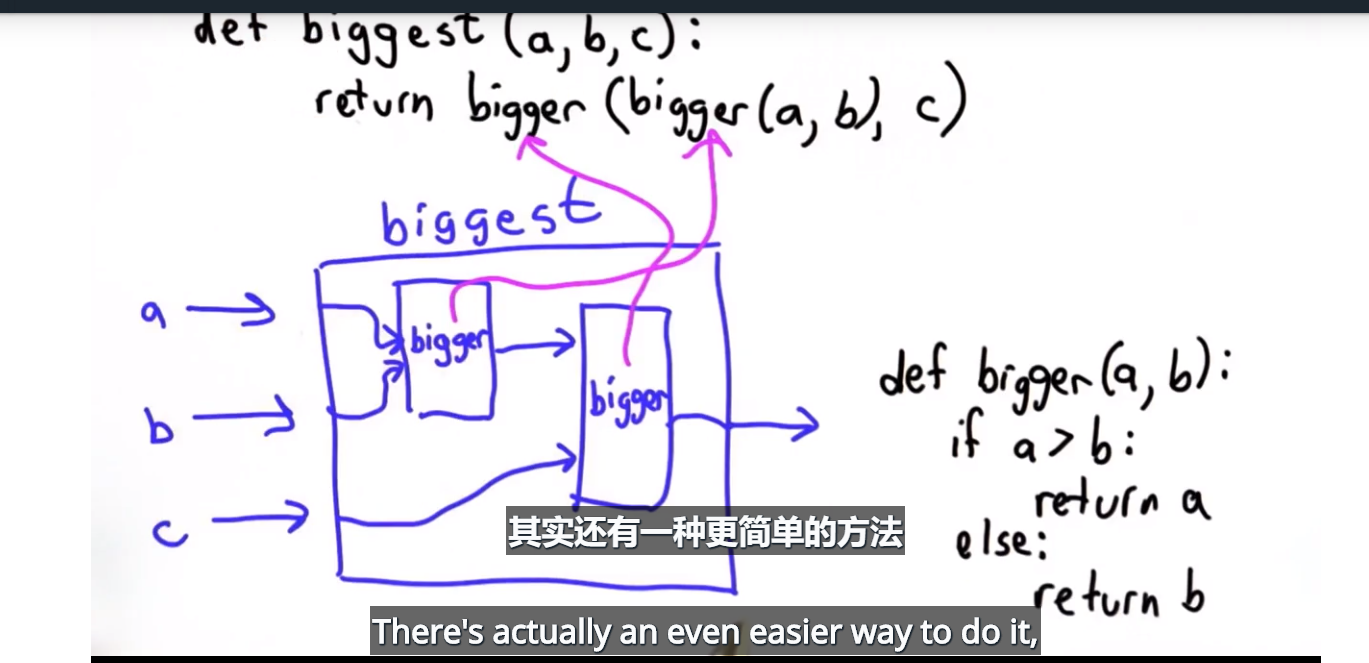 def biggest (a, b, c):
return bigger (bigger(a, b), c)
biggest
a
bigger
bigger
b
c
def bigger(a, b):
if a > b:
return a
else:
return b
其实还有一种更简单的方法
There's actually an even easier way to do it,